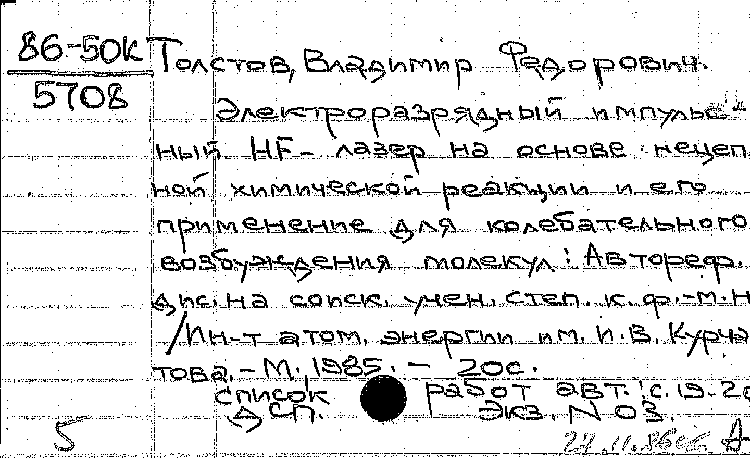 86-50к
5708
Толстов, Владимир Федорович.
Электроразрядный импульс-
ный HF- лазер на основе нецеп
ной химической реакции и его
применение для колебательного
возбуждения молекул : Автореф.
дис. на соиск. учен. степ. к. ф.-м. н
/Ин-т атом. энергии им. И. В. Курча
това. - М., 1985. - 20с.
список работ авт.: с. 19-20
ДСП. Экз. N 03.
5